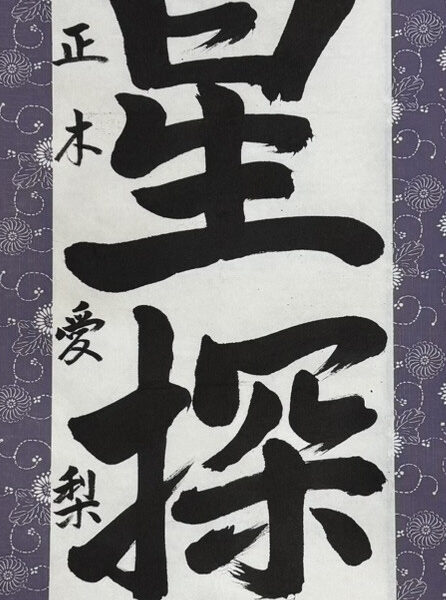 星探
正木愛梨